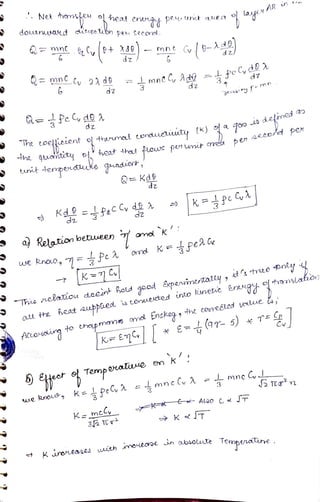 ∴ Net transfer of heat energy per unit area of layer AB in
downward direction per second.
Q = mnc̄/6 Cv (θ + λdθ/dz) - mnc̄/6 Cv (θ - λdθ/dz)
Q = mnc̄/6 Cv 2λ dθ/dz = 1/3 mnc̄ Cv λ dθ/dz = 1/3 ρc̄ Cv dθ/dz λ
Q = 1/3 ρc̄ Cv dθ/dz λ
The coefficient of thermal conductivity (K) of a gas is defined as
the quantity of heat that flows per unit area per second per
unit temperature gradient,
Q = K dθ/dz
⇒ K dθ/dz = 1/3 ρc̄ Cv dθ/dz λ ⇒ K = 1/3 ρc̄ Cv λ
a) Relation between 'η' and 'K':
we know, η = 1/3 ρc̄ λ and K = 1/3 ρc̄λ Cv
→ K = η Cv
This relation doesn't hold good experimentally, it's true only if
all the heat supplied is converted into kinetic energy of translation.
According to chapman and Enskog, the corrected value is,
K = EηCv [ * E = 1/4 (9γ - 5) * γ = Cp/Cv ]
b) Effect of Temperature on 'K':
we know, K = 1/3 ρc̄ Cv λ = 1/3 mnc̄ Cv λ = 1/3 mnc̄ Cv 1/√2 πσ² n
K = mc̄Cv / 3√2 πσ² Also c̄ ∝ √T
⇒ K ∝ √T
→ K increases with increase in absolute Temperature.